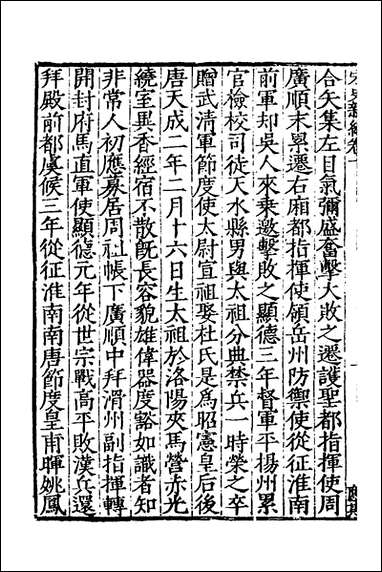 宋史新編卷一
合矢集左目氣彌盛奮擊大敗之遷護聖都指揮使周
廣順末累遷右廂都指揮使領岳州防禦使從征淮南
前軍却吳人來乘邀擊敗之顯德三年督軍平揚州累
官檢校司徒天水縣男與太祖分典禁兵一時榮之卒
贈武清軍節度使太尉宣祖娶杜氏是為昭憲皇后後
唐天成二年二月十六日生太祖於洛陽夾馬營赤光
繞室異香經宿不散旣長容貌雄偉器度豁如識者知
非常人初應募居周祖帳下廣順中拜滑州副指揮轉
開封府馬直軍使顯德元年從世宗戰高平敗漢兵還
拜殿前都虞候三年從征淮南南唐節度皇甫暉姚鳳